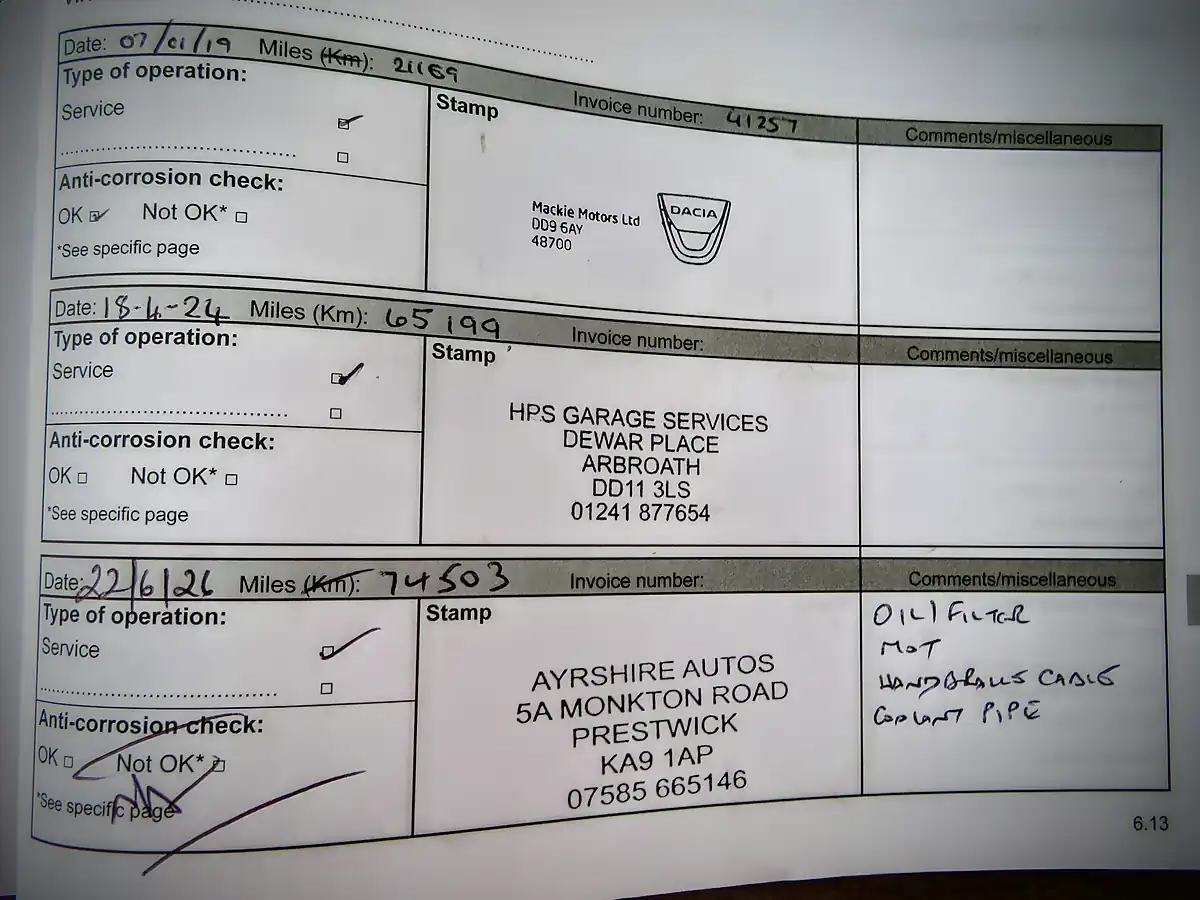 Date: 07/01/19 Miles (Km): 21169 Invoice number: 41257 Comments/miscellaneous
Type of operation:
Service
Stamp
Anti-corrosion check:
OK Not OK*
*See specific page
Mackie Motors Ltd
DD9 6AY
48700
DACIA
Date: 18-4-24 Miles (Km): 65199 Invoice number: Comments/miscellaneous
Type of operation:
Service
Stamp
Anti-corrosion check:
OK Not OK*
*See specific page
HPS GARAGE SERVICES
DEWAR PLACE
ARBROATH
DD11 3LS
01241 877654
Date: 22/6/26 Miles (Km): 74503 Invoice number: Comments/miscellaneous
Type of operation:
Service
Stamp
Anti-corrosion check:
OK Not OK*
*See specific page
AYRSHIRE AUTOS
5A MONKTON ROAD
PRESTWICK
KA9 1AP
07585 665146
OIL/FILTER
MOT
HANDBRAKE CABLE
COOLANT PIPE
6.13